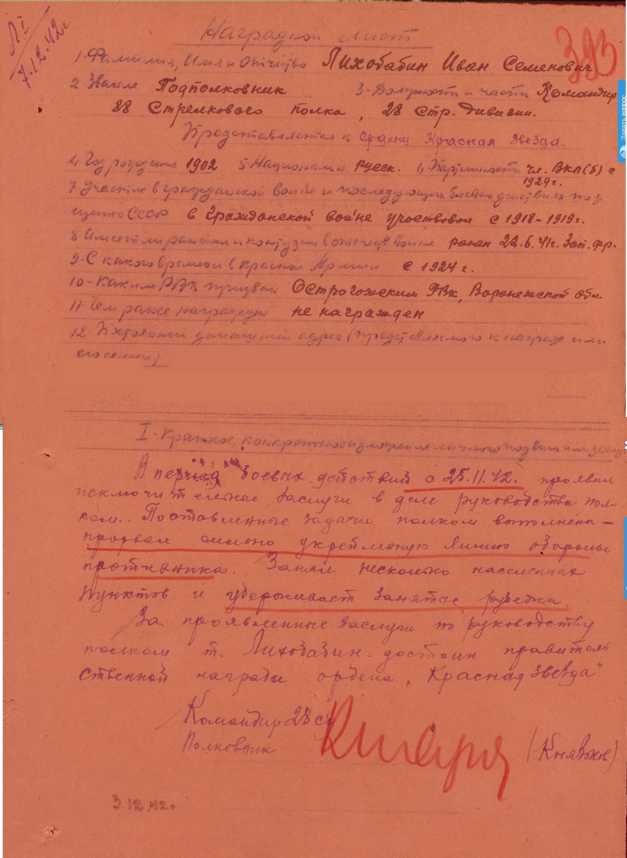 Л I
7.12.42г
393
Наградной лист
1. Фамилия, Имя и Отчество Лихобабин Иван Семенович
2. Звание Подполковник 3. Должность и часть Командир
28 Стрелкового полка, 28 Стр. дивизии.
Представляется к ордену Красная Звезда.
4. Год рождения 1902 5. Национальн. Русск. 6. Партийность чл. ВКП(б) с
1929г.
7. Участие в гражданской войне и последующих боевых действиях по за
щите СССР в Гражданской войне участвовал с 1918-1919г.
8. Имеет ли ранения и контузии в отечеств. войне ранен 22.6.41г. Зап. фр.
9. С какого времени в Красной Армии с 1924 г.
10. Каким РВК призван Острогожским РВК, Воронежской обл.
11. Чем ранее награжден не награжден
12. Постоянный домашний адрес (представляемого к награде или
его семьи)
I. Краткое, конкретное изложение личного подвига или заслуг
В период боевых действий с 25.11.42. проявил
исключительные заслуги в деле руководства пол-
ком. Поставленные задачи полком выполнены -
прорвал сильно укрепленную линию обороны
противника. Занял несколько населенных
пунктов и удерживает занятые рубежи.
За проявленные заслуги по руководству
полком т. Лихобабин достоин правитель
ственной награды ордена „Красная Звезда"
Командир 28 сд
Полковник (Князьков)
3.12.42г.